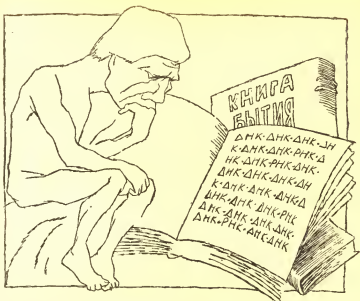 КНИГА
БЫТИЯ
ДНК·ДНК·ДНК·ДН
К·ДНК·ДНК·РНК·Д
НК·ДНК·РНК·ДНК·
ДНК·ДНК·ДНК·ДН
К·ДНК·ДНК·ДНКД
ДНК·ДНК·ДНК·РНК
ДНК·ДНК·ДНК·ДНК·
ДНК·РНК·ДНК·ДНК